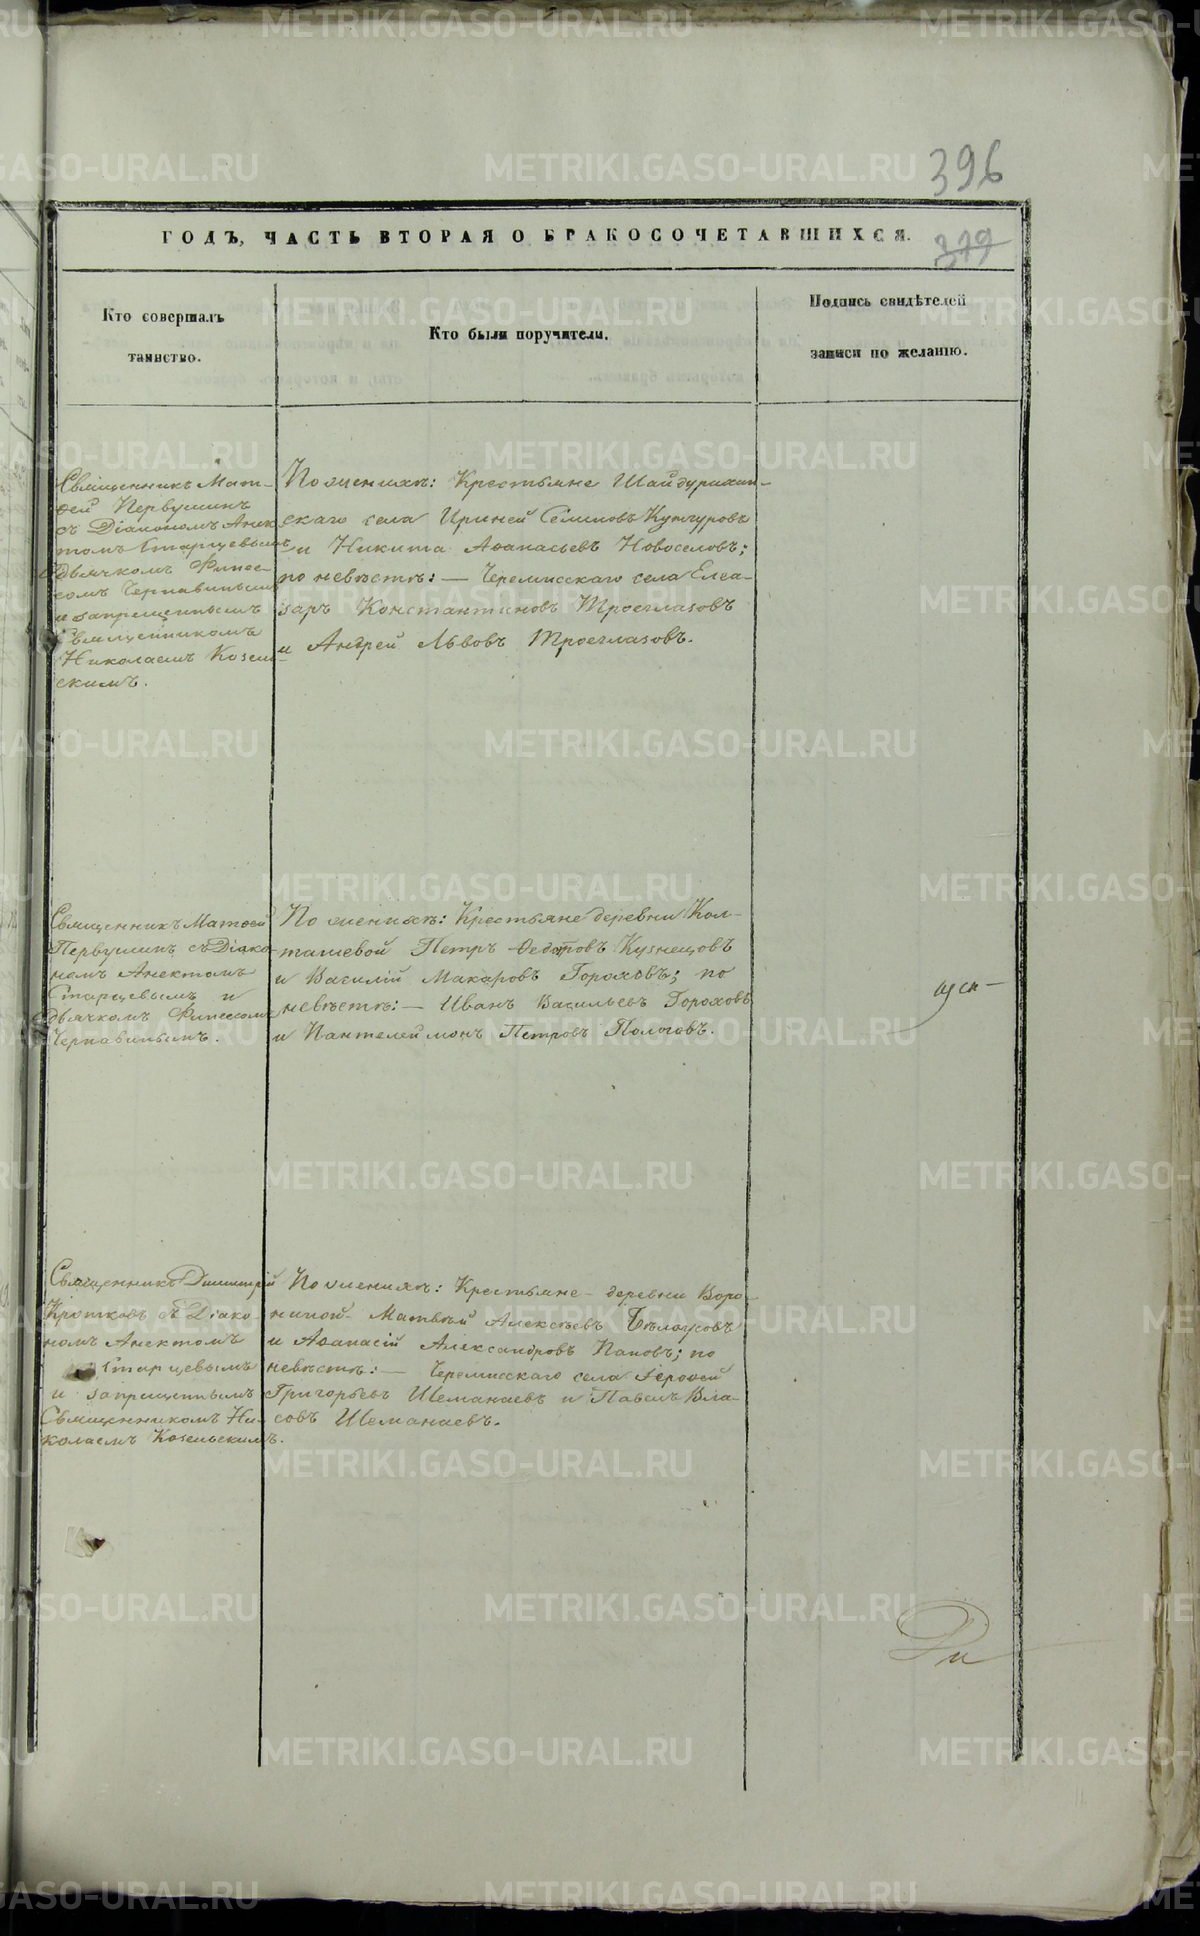 396
ГОДЪ, ЧАСТЬ ВТОРАЯ О БРАКОСОЧЕТАВШИХСЯ.
379
Кто совершалъ
таинство.
Кто были поручители.
Подпись свидѣтелей
записи по желанію.
Священникъ Мат-
ѳей Первушинъ
съ Діакономъ Анек
томъ Старцевымъ
дьячкомъ Финее-
сомъ Чернавинымъ
и запрещеннымъ
Священникомъ
Николаемъ Козель-
скимъ.
По женихѣ: Крестьяне Шайдурихин-
скаго села Ириней Семеновъ Кунгуровъ
и Никита Аѳанасьевъ Новоселовъ;
по невѣстѣ: — Черемисскаго села Елеа-
заръ Константиновъ Троеглазовъ
и Андрей Львовъ Троеглазовъ.
Священникъ Матѳей
Первушинъ съ Діако-
номъ Анектомъ
Старцевымъ и
дьячкомъ Финеесомъ
Чернавинымъ.
По женихѣ: Крестьяне деревни Кол-
ташевой Петръ Ѳедотовъ Кузнецовъ
и Василій Макаровъ Гороховъ; по
невѣстѣ: — Иванъ Васильевъ Гороховъ
и Пантелеймонъ Петровъ Пологовъ.
Священникъ Димитрій
Кротковъ съ Діако-
номъ Анектомъ
Старцевымъ
и запрещеннымъ
Священникомъ Ни-
колаемъ Козельскимъ.
По женихѣ: Крестьяне - деревни Воро-
ниной - Матвѣй Алексѣевъ Бѣлоусовъ
и Аѳанасій Александровъ Пановъ; по
невѣстѣ: — Черемисскаго села Ерофей
Григорьевъ Шеманаевъ и Павелъ Вла-
совъ Шеманаевъ.